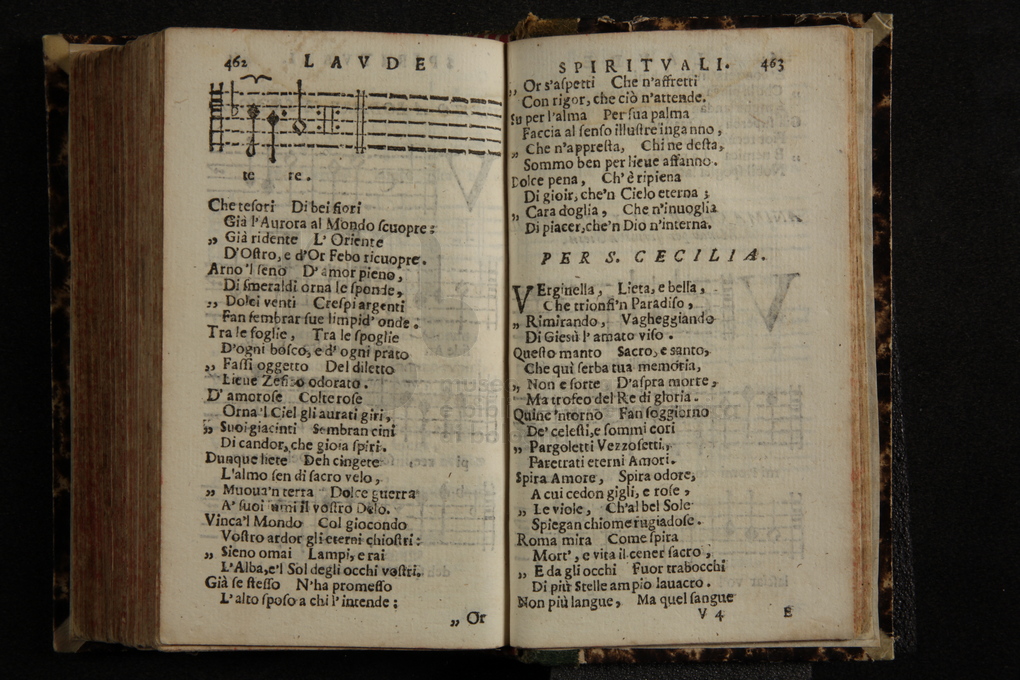 462 LAVDE
te re.
Che tesori Di bei fiori
Già l'Aurora al Mondo scuopre:
„ Già ridente L' Oriente
D'Ostro, e d'Or Febo ricuopre.
Arno 'l seno D'amor pieno,
Di smeraldi orna le sponde,
„ Dolci venti Crespi argenti
Fan sembrar sue limpid' onde.
Tra le foglie, Tra le spoglie
D'ogni bosco, e d' ogni prato
„ Fassi oggetto Del diletto
Lieue Zefiro odorato.
D' amorose Colte rose
Orna 'l Ciel gli aurati giri,
„ Suoi giacinti Sembran cinti
Di candor, che gioia spiri.
Dunque liete Deh cingete
L'almo sen di sacro velo,
„ Muoua'n terra Dolce guerra
A' suoi il vostro Delo.
Vinca'l Mondo Col giocondo
Vostro ardor gli eterni chiostri:
„ Sieno omai Lampi, e rai
L'Alba, e'l Sol degli occhi vostri.
Già se stesso N'ha promesso
L'alto sposo a chi l'intende;
„ Or
SPIRITVALI. 463
„ Or s'aspetti Che n'affretti
Con rigor, che ciò n'attende.
Su per l'alma Per sua palma
Faccia al senso illustre inganno,
„ Che n'appresta, Chi ne desta,
Sommo ben per lieue affanno.
Dolce pena, Ch' è ripiena
Di gioir, che'n Cielo eterna;
„ Cara doglia, Che n'inuoglia
Di piacer, che'n Dio n'interna.
PER S. CECILIA.
VErginella, Lieta, e bella,
Che trionfi'n Paradiso,
„ Rimirando, Vagheggiando
Di Giesù l' amato viso.
Questo manto Sacro, e santo,
Che quì serba tua memoria,
„ Non e sorte D'aspra morte,
Ma trofeo del Re di gloria.
Quine 'ntorno Fan soggiorno
De' celesti, e sommi cori
„ Pargoletti Vezzosetti,
Faretrati eterni Amori.
Spira Amore, Spira odore,
A cui cedon gigli, e rose,
„ Le viole, Ch'al bel Sole
Spiegan chiome rugiadose.
Roma mira Come spira
Mort', e vita il cener sacro,
„ E da gli occhi Fuor trabocchi
Di più Stelle ampio lauacro.
Non più langue, Ma quel sangue
V 4 E